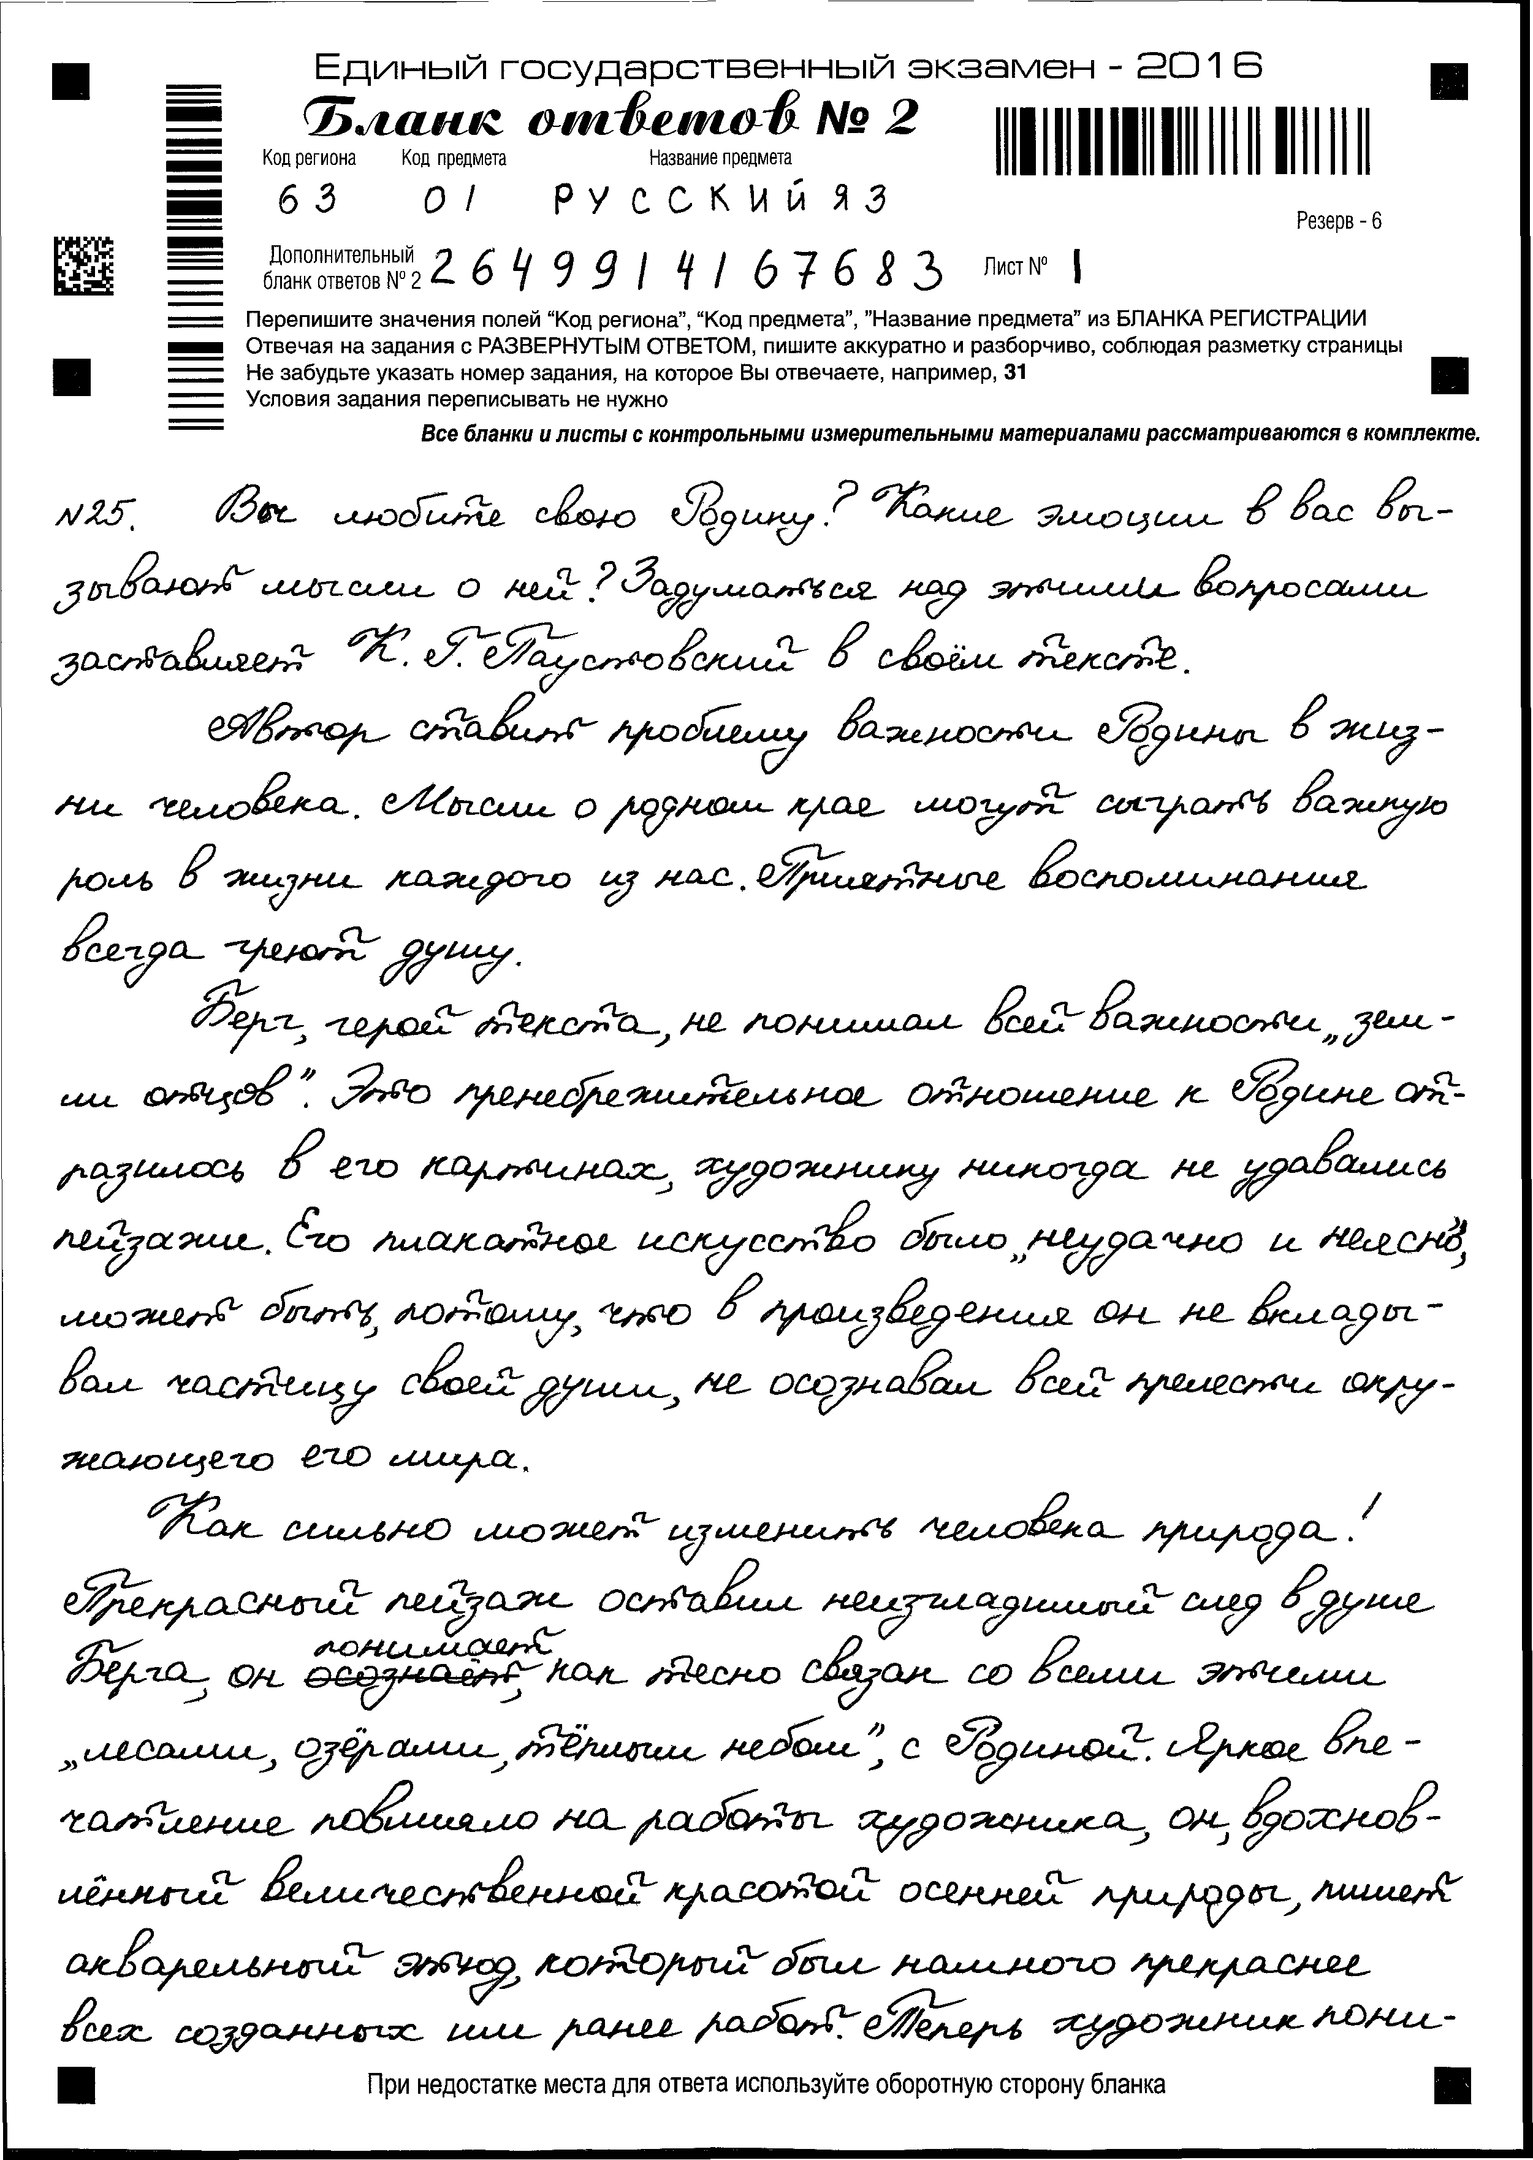 Единый государственный экзамен - 2016
Бланк ответов № 2
Код региона Код предмета Название предмета
63 01 РУССКИЙ ЯЗ
Резерв - 6
Дополнительный
бланк ответов № 2 2649914167683 Лист № 1
Перепишите значения полей “Код региона”, “Код предмета”, ”Название предмета” из БЛАНКА РЕГИСТРАЦИИ
Отвечая на задания с РАЗВЕРНУТЫМ ОТВЕТОМ, пишите аккуратно и разборчиво, соблюдая разметку страницы
Не забудьте указать номер задания, на которое Вы отвечаете, например, 31
Условия задания переписывать не нужно
Все бланки и листы с контрольными измерительными материалами рассматриваются в комплекте.
N25. Вы любите свою Родину? Какие эмоции в вас вы-
зывают мысли о ней? Задуматься над этими вопросами
заставляет К. Г. Паустовский в своём тексте.
Автор ставит проблему важности Родины в жиз-
ни человека. Мысли о родном крае могут сыграть важную
роль в жизни каждого из нас. Приятные воспоминания
всегда греют душу.
Берг, герой текста, не понимал всей важности „зем-
ли отцов”. Это пренебрежительное отношение к Родине от-
разилось в его картинах, художнику никогда не удавались
пейзажи. Его плакатное искусство было „неудачно и неясно”,
может быть, потому, что в произведения он не вклады-
вал частицу своей души, не осознавал всей прелести окру-
жающего его мира.
Как сильно может изменить человека природа!
Прекрасный пейзаж оставил неизгладимый след в душе
понимает
Берга, он осознаёт, как тесно связан со всеми этими
„лесами, озёрами, тёплым небом”, с Родиной. Яркое впе-
чатление повлияло на работы художника, он, вдохнов-
лённый величественной красотой осенней природы, пишет
акварельный этюд, который был намного прекраснее
всех созданных им ранее работ. Теперь художник пони-
При недостатке места для ответа используйте оборотную сторону бланка